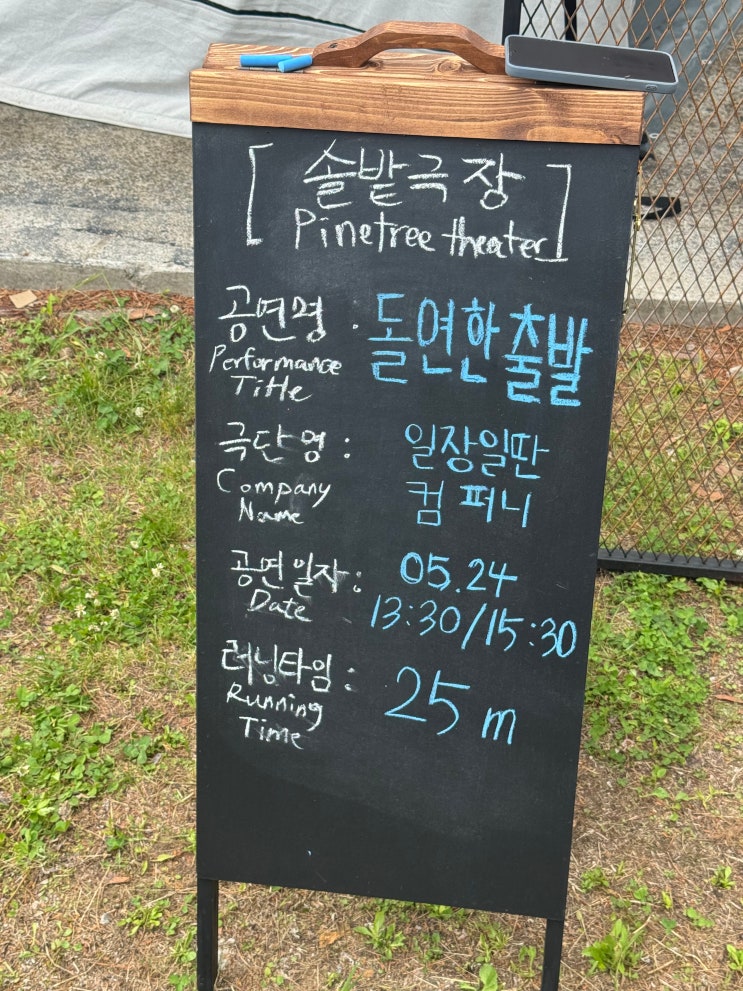 [ 솔밭극장
Pinetree theater]
공연명 : 돌연한출발
Performance
Title
극단명 : 일장일딴
Company 컴퍼니
Name
공연일자 : 05.24
Date 13:30/15:30
러닝타임 : 25m
Running
Time